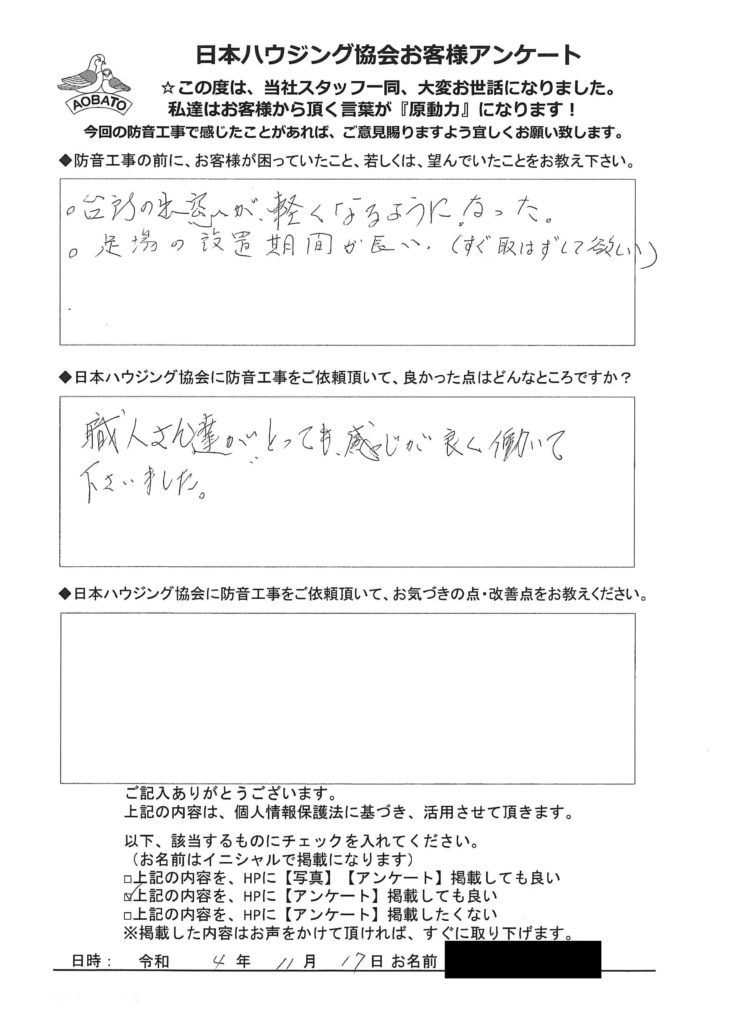 日本ハウジング協会お客様アンケート
AOBATO
☆この度は、当社スタッフ一同、大変お世話になりました。
私達はお客様から頂く言葉が『原動力』になります！
今回の防音工事で感じたことがあれば、ご意見賜りますよう宜しくお願い致します。
◆防音工事の前に、お客様が困っていたこと、若しくは、望んでいたことをお教え下さい。
。台所の出窓が、軽くなるようになった。
。足場の設置期間が長い．(すぐ取はずして欲しい)
◆日本ハウジング協会に防音工事をご依頼頂いて、良かった点はどんなところですか？
職人さん達がとっても、感じが良く働いて
下さいました。
◆日本ハウジング協会に防音工事をご依頼頂いて、お気づきの点・改善点をお教えください。
ご記入ありがとうございます。
上記の内容は、個人情報保護法に基づき、活用させて頂きます。
以下、該当するものにチェックを入れてください。
（お名前はイニシャルで掲載になります）
□上記の内容を、HPに【写真】【アンケート】掲載しても良い
☑上記の内容を、HPに【アンケート】掲載しても良い
□上記の内容を、HPに【アンケート】掲載したくない
※掲載した内容はお声をかけて頂ければ、すぐに取り下げます。
日時： 令和 4 年 11 月 17 日 お名前